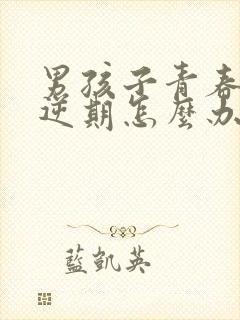 男孩子青春
逆期怎麼办
藍凱英